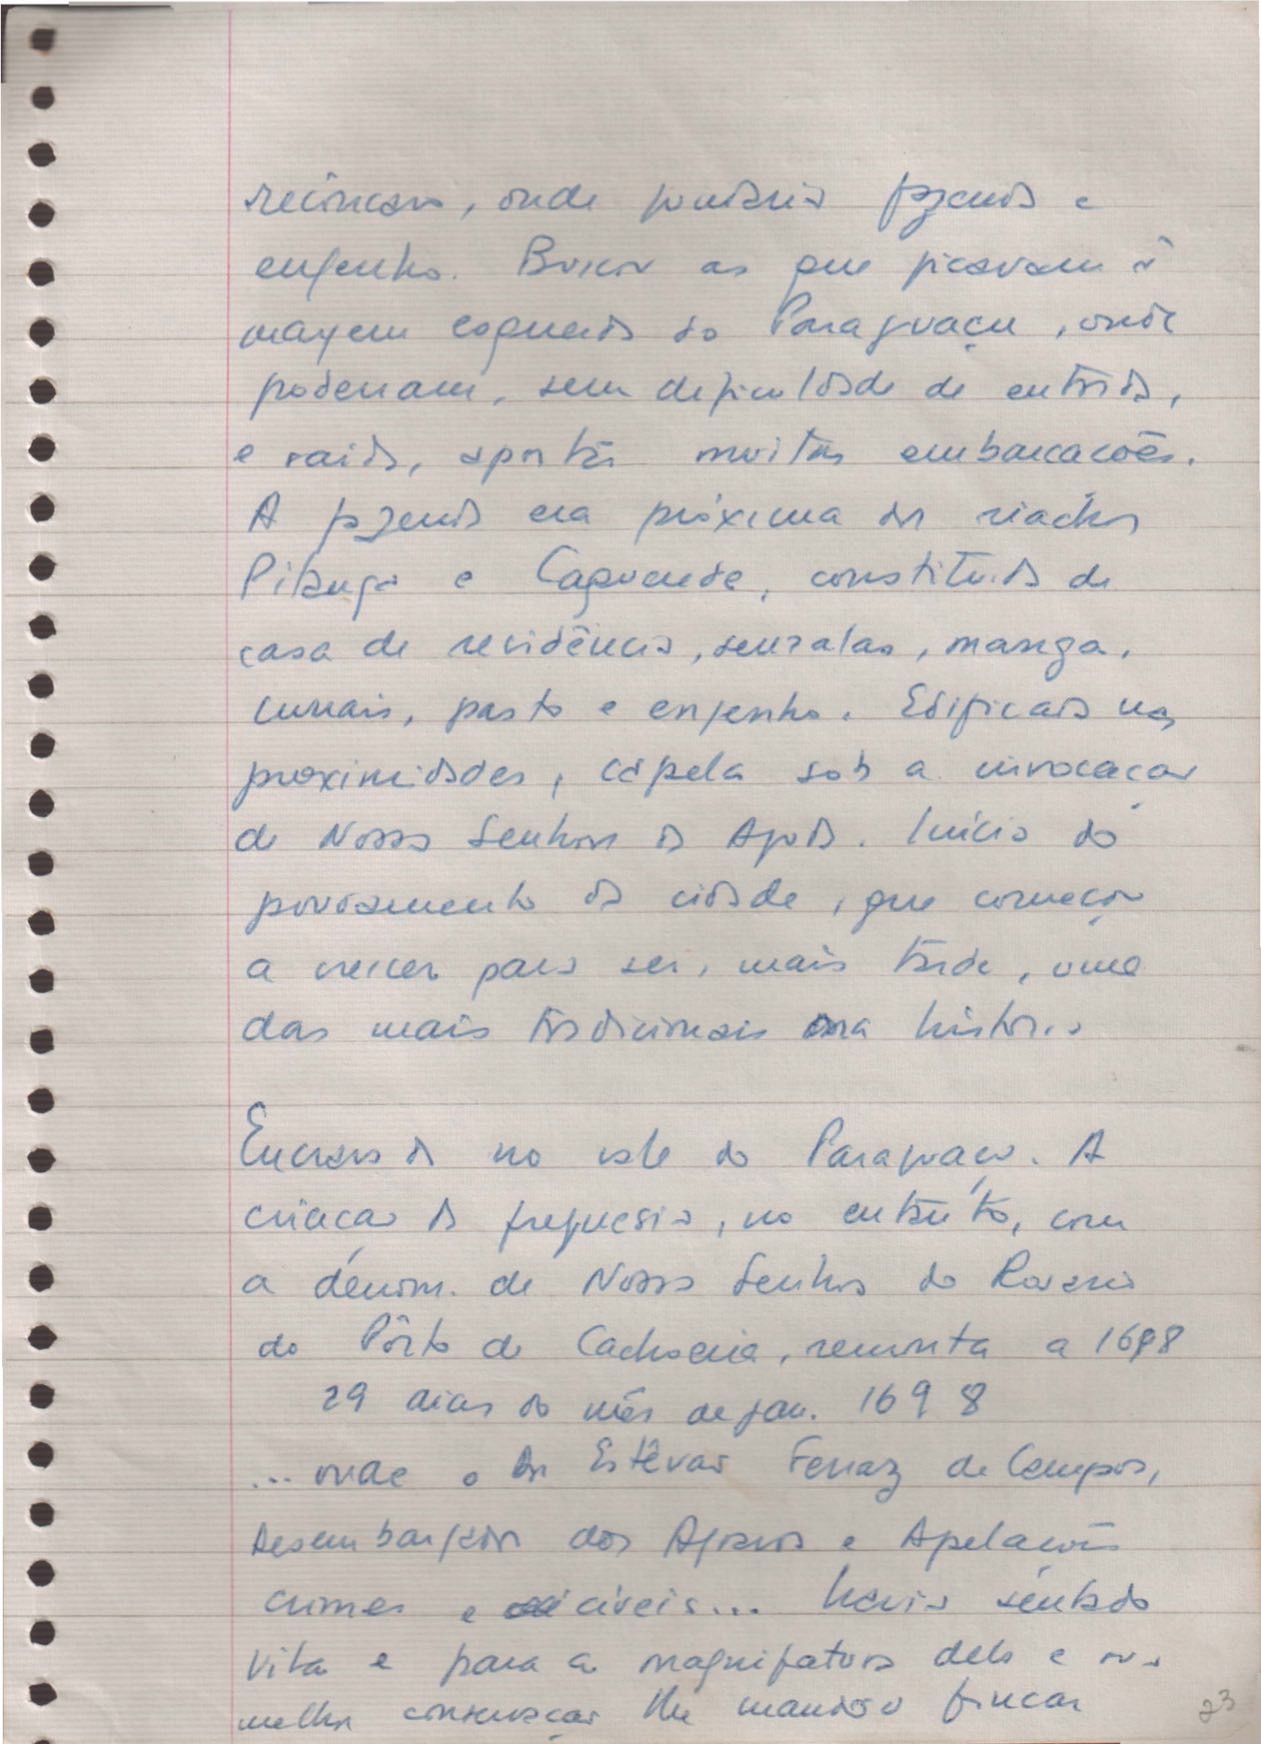 recôncavo, onde fundaria fazenda e
engenho. Buscou as que ficavam à
margem esquerda do Paraguaçu, onde
poderiam, sem dificuldade de entrada,
e saida, aportar muitas embarcações.
A fazenda era próxima dos riachos
Pitanga e Caquende, constituida de
casa de residência, senzalas, manga,
currais, pasto e engenho. Edificada nas
proximidades, capela sob a invocação
de Nossa Senhora da Ajuda. Início do
povoamento da cidade, que começou
a crescer para ser, mais tarde, uma
das mais tradicionais na história
Encravada no vale do Paraguaçu. A
criação da freguesia, no entanto, com
a denom. de Nossa Senhora do Rosario
do Pôrto da Cachoeira, remonta a 1698
29 dias do mês de jan. 1698
... onde o Dr Estêvão Ferraz de Campos,
Desembargador dos Agravos e Apelações
crimes e cíveis... havia
Vila e para a magnifatura dela e
melhor conservação lhe mandou fincar
23